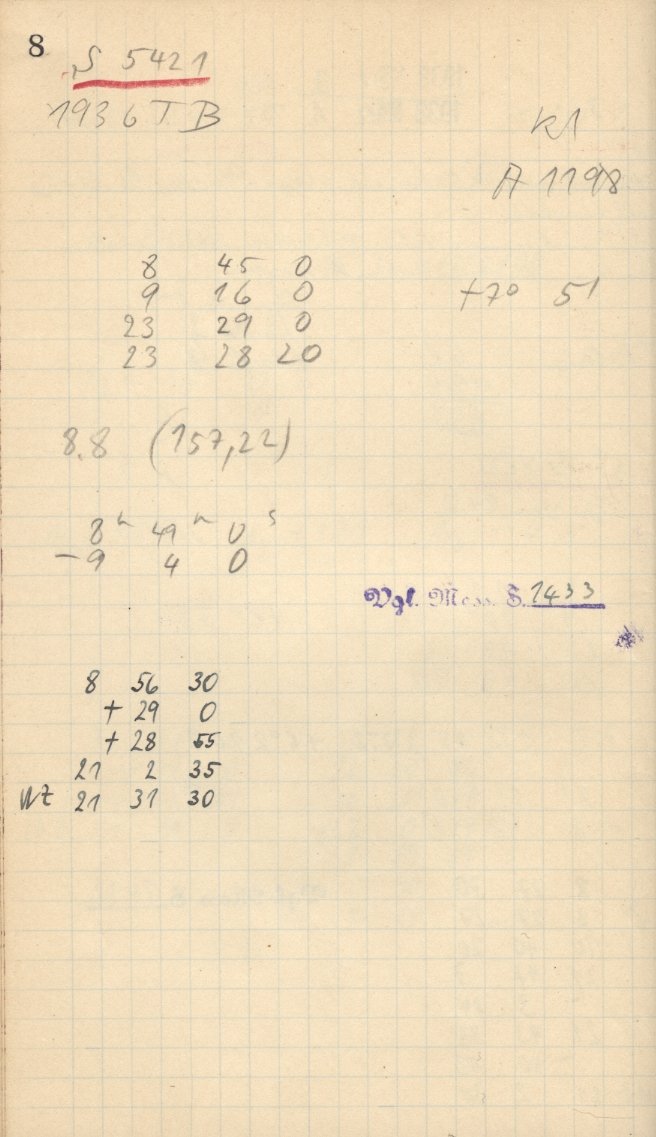 8
S 5421
1936 T B
Kl
A 1198
8 45 0
9 16 0
+7° 51
23 29 0
23 28 20
8.8 (157,22)
8h 49m 0s
-9 4 0
Vgl. Mess. S. 1433
8 56 30
+ 29 0
+ 28 55
21 2 35
WZ 21 31 30